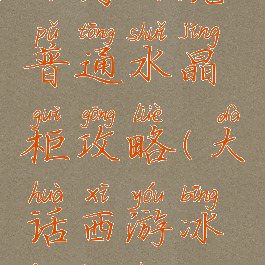 pǔ tōng shuǐ jīng
普通水晶
guì gōng lüè dà
柜攻略(大
huà xī yóu bīng
话西游冰